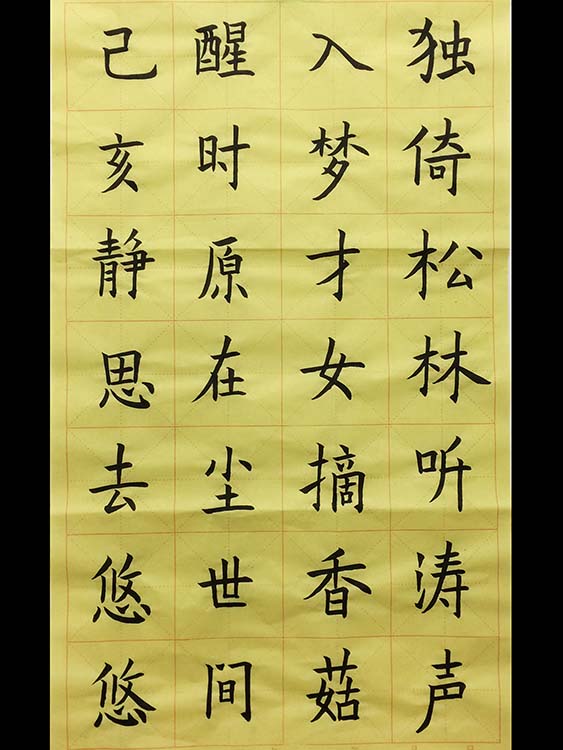 独倚松林听涛声
入梦才女摘香菇
醒时原在尘世间
己亥静思去悠悠